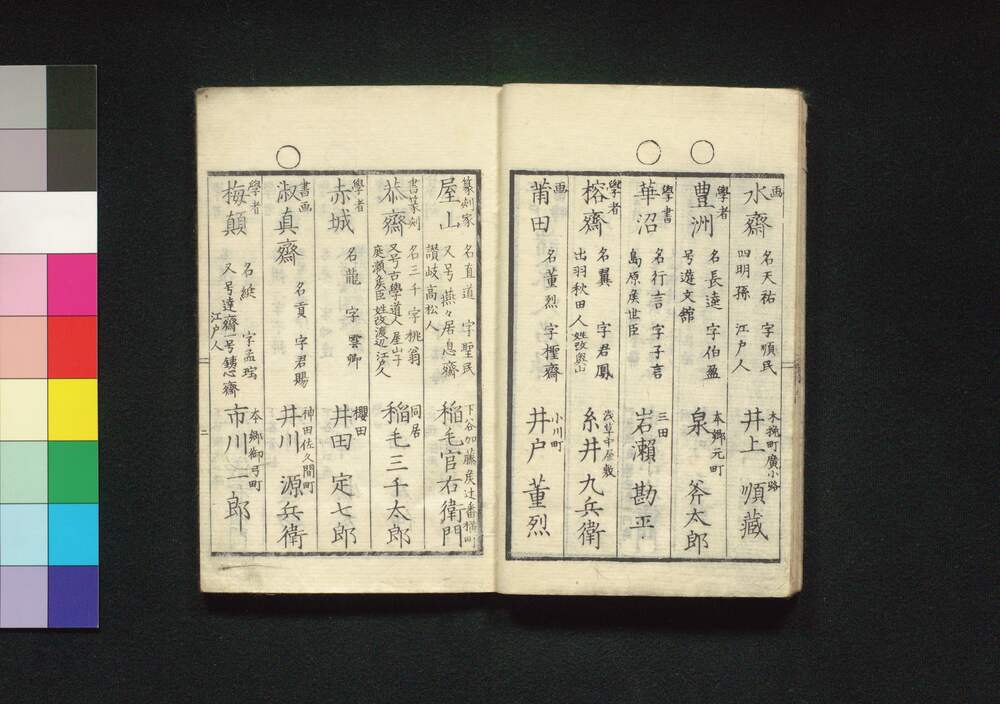 画
水齋
名天祐 字順民
四明孫 江戸人
木挽町廣小路
井上 順藏
學者
豊洲
名長達 字伯盈
号遊文館
本郷元町
泉 斧太郎
學書
華沼
名行言 字子言
島原矦世臣
三田
岩瀬 勘平
學者
榕齋
名翼 字君鳳
出羽秋田人 姓改奥山
浅草中屋敷
糸井 九兵衛
画
莆田
名董烈 字櫁齋
小川町
井戸 董烈
篆刻家
屋山
名直道 字聖民
又号燕々居息齋
讃岐高松人
下谷加藤矦辻番横町
稲毛官右衛門
書篆刻
恭齋
名三千 字桃翁
又号古學道人 屋山子
庭瀬矦臣 姓改渡辺 江戸人
同居
稲毛三千太郎
學者
赤城
名龍 字雲卿
櫻田
井田 定七郎
書画
淑真齋
名貢 字君賜
神田佐久間町
井川 源兵衛
學者
梅顛
名 字孟瑶
又号達齋 一号鋳心齋
江戸人
本郷御弓町
市川 一郎
二